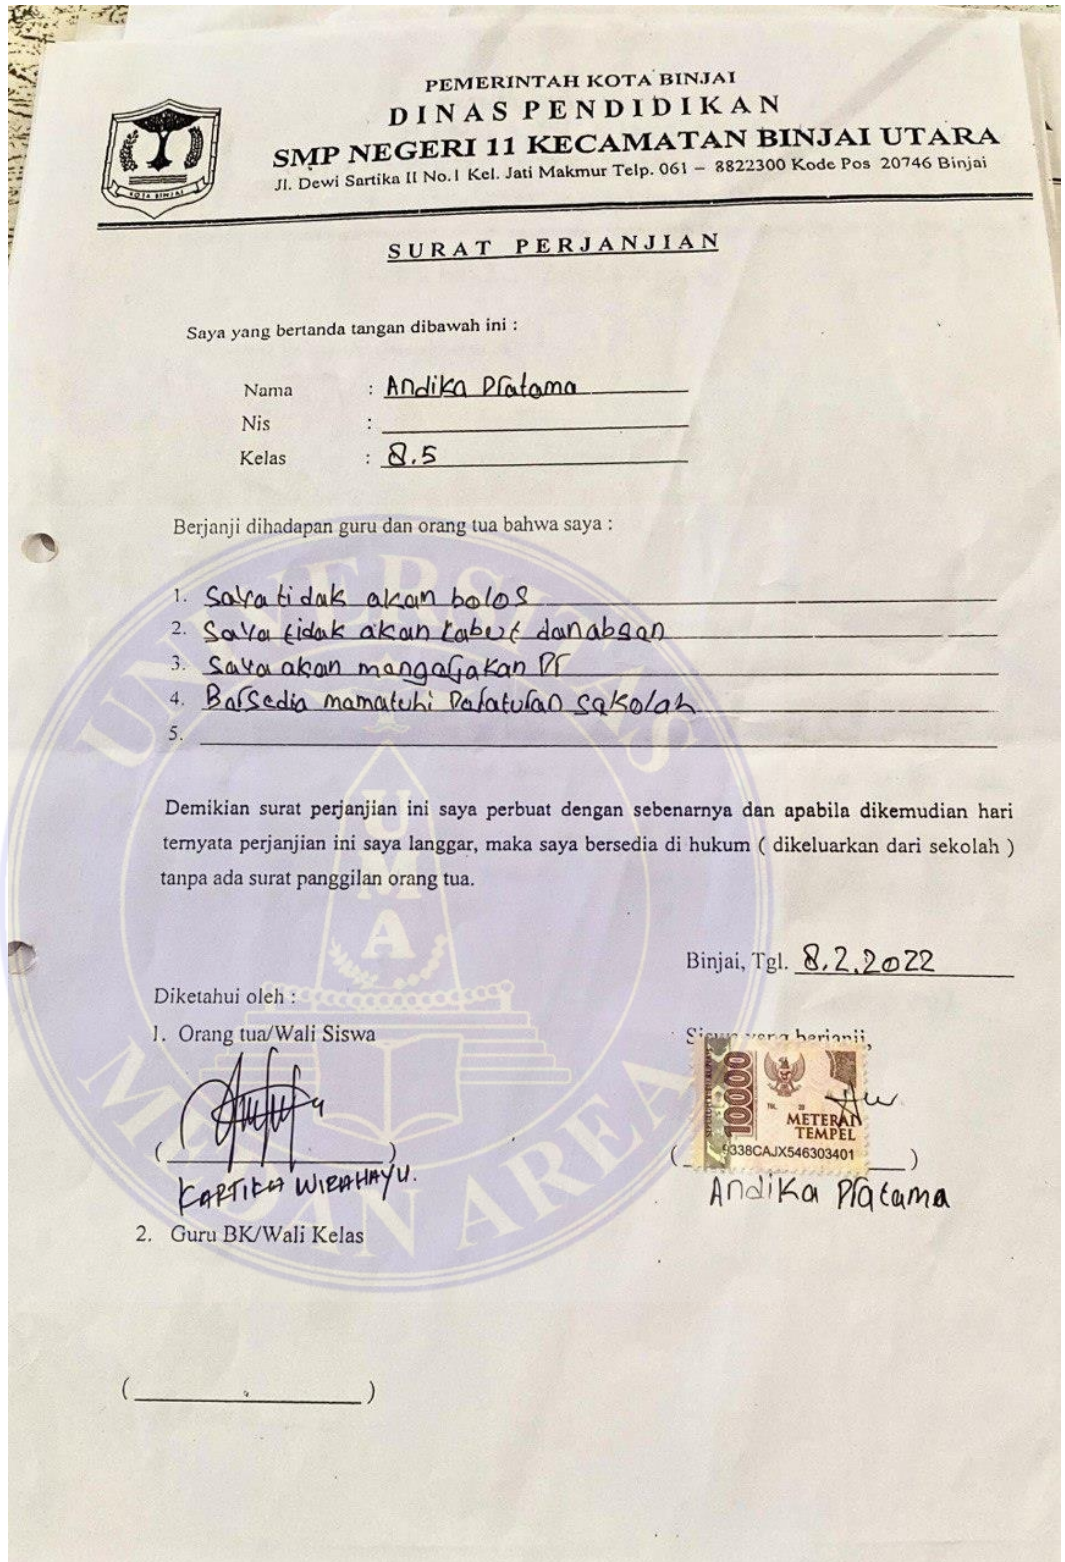 PEMERINTAH KOTA BINJAI
DINAS PENDIDIKAN
SMP NEGERI 11 KECAMATAN BINJAI UTARA
Jl. Dewi Sartika II No.1 Kel. Jati Makmur Telp. 061 – 8822300 Kode Pos 20746 Binjai
KOTA BINJAI
SURAT PERJANJIAN
Saya yang bertanda tangan dibawah ini :
Nama : Andika Pratama
Nis :
Kelas : 8.5
Berjanji dihadapan guru dan orang tua bahwa saya :
1. Saya tidak akan bolos
2. Saya tidak akan danabsan
3. Saya akan PR
4. Barsedia mamatuhi Paraturan sakolah
5.
Demikian surat perjanjian ini saya perbuat dengan sebenarnya dan apabila dikemudian hari
ternyata perjanjian ini saya langgar, maka saya bersedia di hukum ( dikeluarkan dari sekolah )
tanpa ada surat panggilan orang tua.
Binjai, Tgl. 8.2.2022
Diketahui oleh :
1. Orang tua/Wali Siswa
Siswa yang berjanji,
10000
TGL. 20
METERAI
TEMPEL
9338CAJX546303401
KARTIKA WIRAHAYU.
Andika Pratama
2. Guru BK/Wali Kelas
UNIVERSITAS
MEDAN AREA
UMA